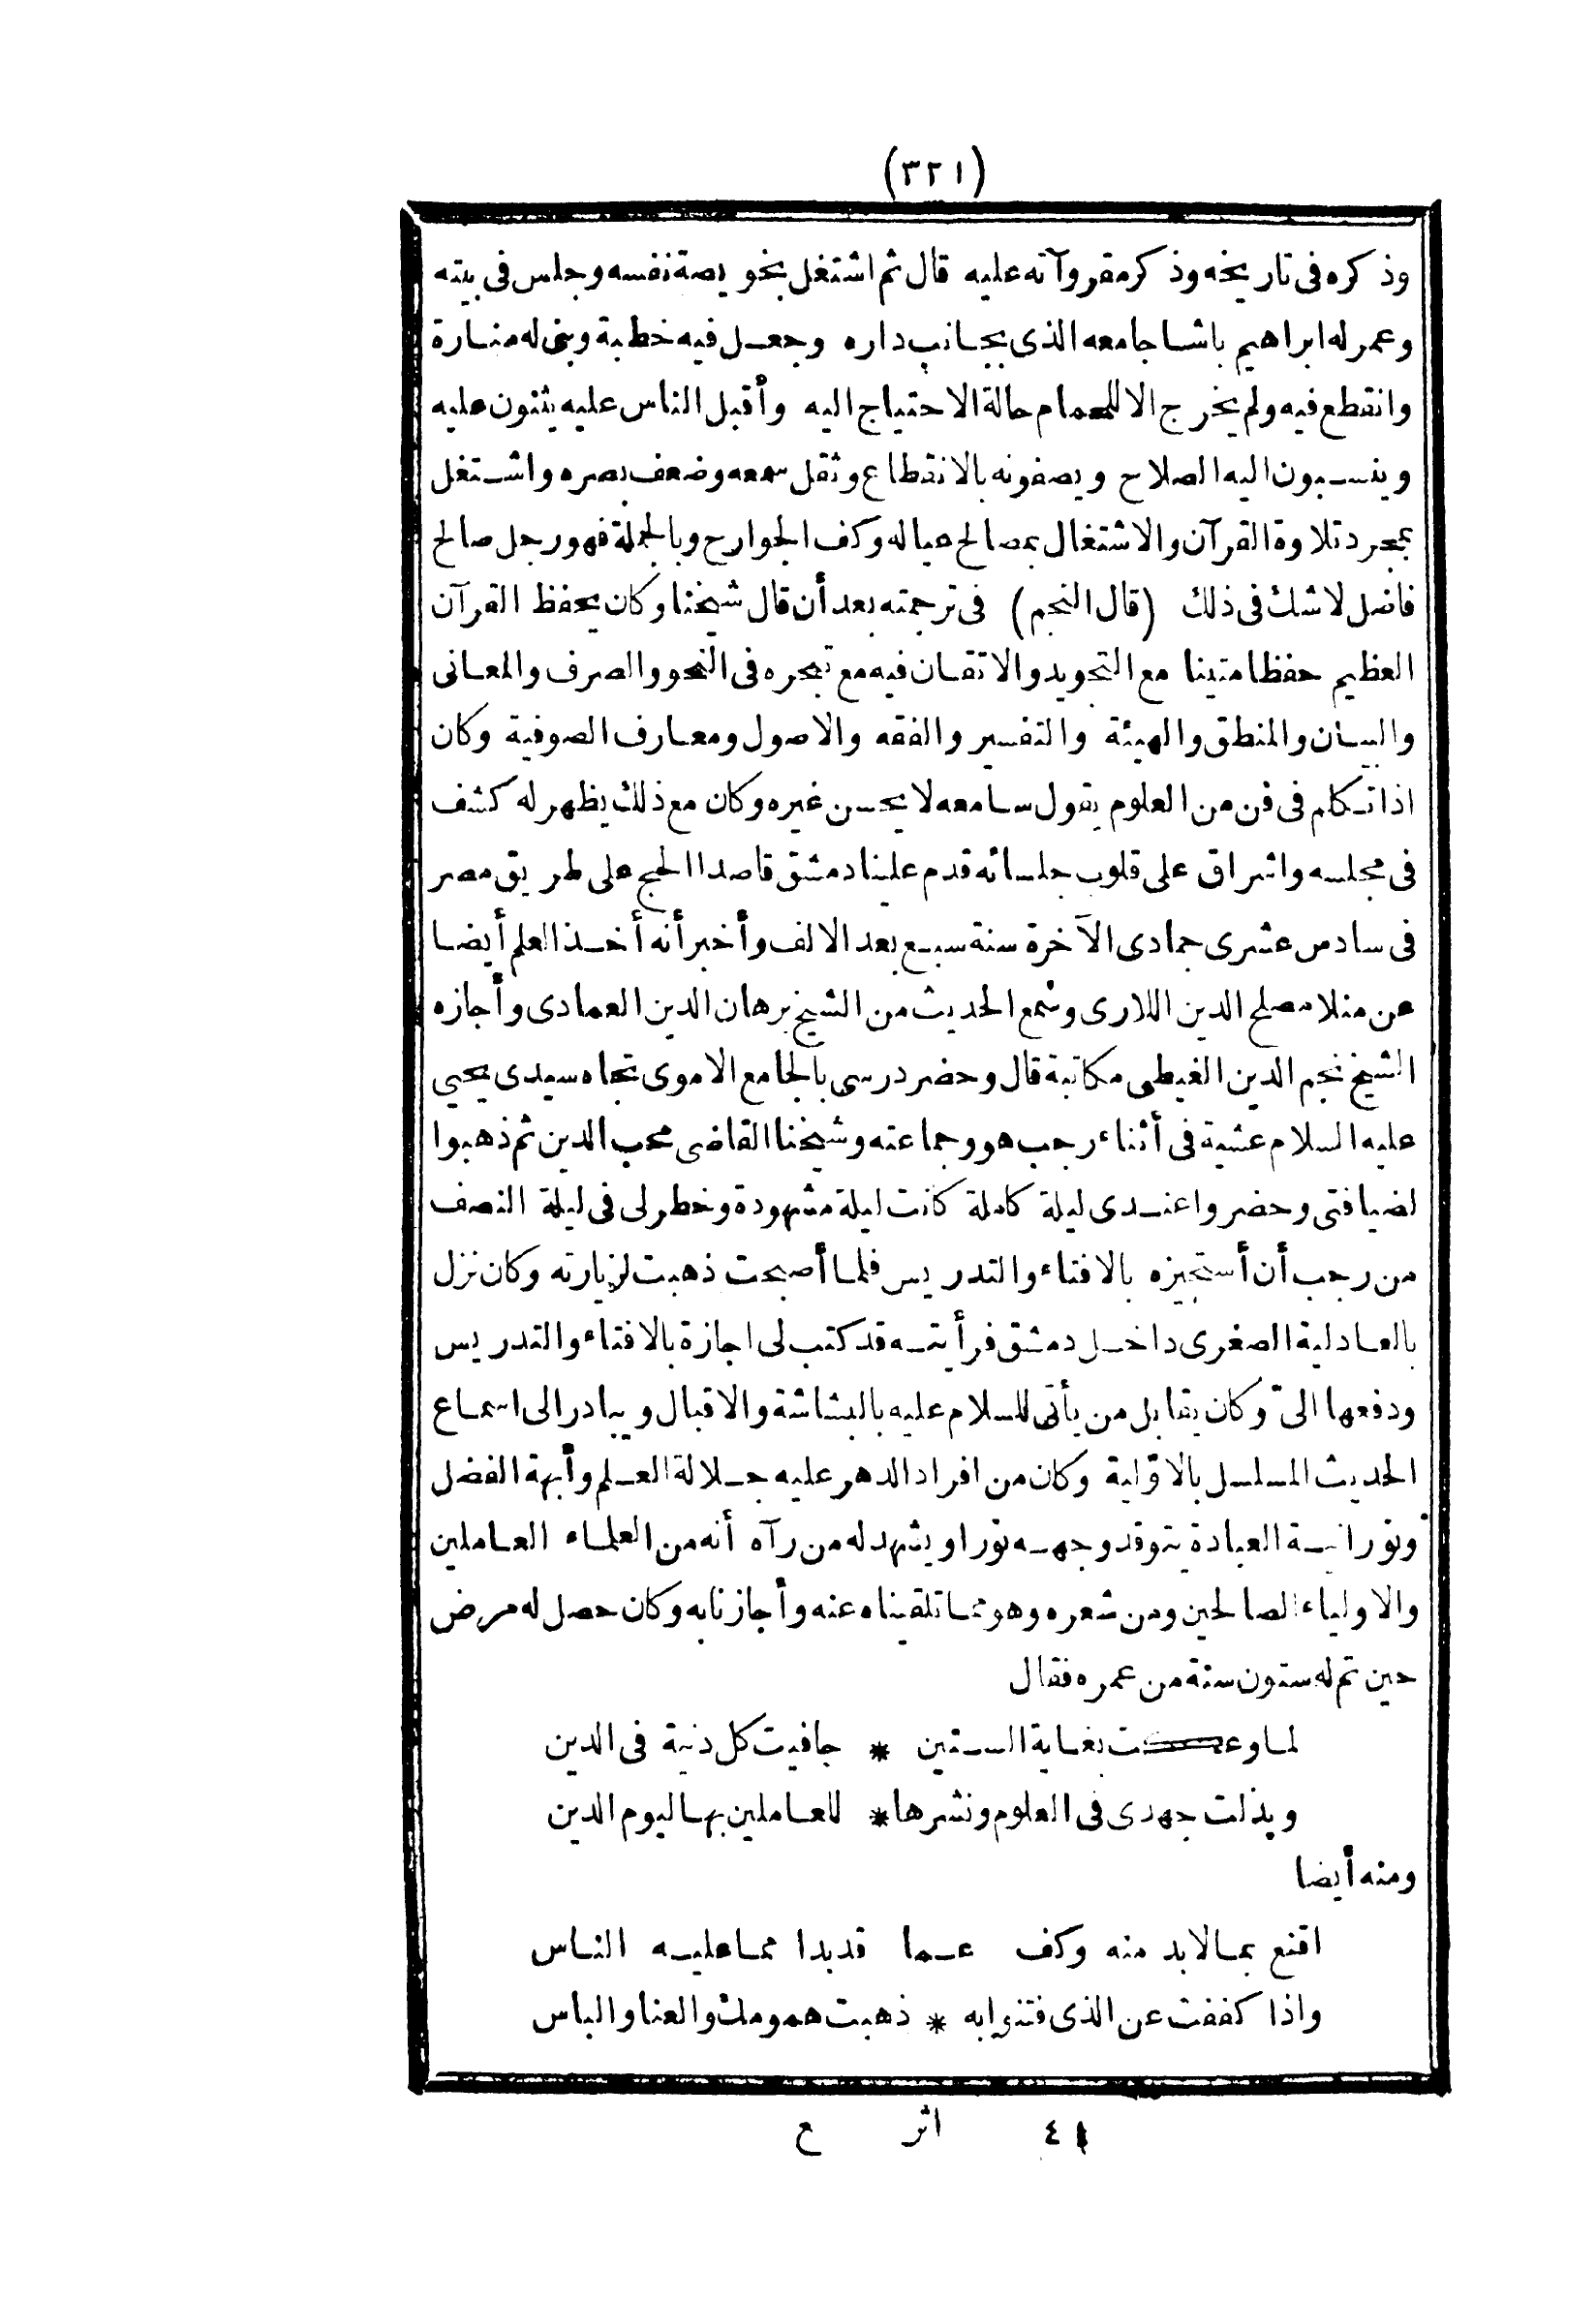 (٣٢١)
وذكره فى تاريخه وذكر مقروآته عليه قال ثم اشتغل بخويصة نفسه وجلس فى بيته
وعمر له ابراهيم باشا جامعه الذى بجانب داره وجعل فيه خطبة وبنى له منارة
وانقطع فيه ولم يخرج الا للحمام حالة الاحتياج اليه وأقبل الناس عليه يثنون عليه
وينسبون اليه الصلاح ويصفونه بالانقطاع وثقل سمعه وضعف بصره واشتغل
بمجرد تلاوة القرآن والاشتغال بمصالح عياله وكف الجوارح وبالجملة فهو رجل صالح
فاضل لا شك فى ذلك (قال النجم) فى ترجمته بعد أن قال شيخنا وكان يحفظ القرآن
العظيم حفظا متينا مع التجويد والاتقان فيه مع تبحره فى النحو والصرف والمعانى
والبيان والمنطق والهيئة والتفسير والفقه والاصول ومعارف الصوفية وكان
اذا تكلم فى فن من العلوم يقول سامعه لا يحسن غيره وكان مع ذلك يظهر له كشف
فى مجلسه واشراق على قلوب جلسائه قدم علينا دمشق قاصدا الحج على طريق مصر
فى سادس عشرى جمادى الآخرة سنة سبع بعد الالف وأخبر أنه أخذ العلم أيضا
عن منلا مصلح الدين اللارى وسمع الحديث من الشيخ برهان الدين العمادى وأجازه
الشيخ نجم الدين الغيطى مكاتبة قال وحضر درسى بالجامع الاموى تجاه سيدى يحيى
عليه السلام عشية فى أثناء رجب هو وجماعته وشيخنا القاضى محب الدين ثم ذهبوا
لضيافتى وحضروا عندى ليلة كاملة كانت ليلة مشهودة وخطر لى فى ليلة النصف
من رجب أن أستجيزه بالافتاء والتدريس فلما أصبحت ذهبت لزيارته وكان نزل
بالعادلية الصغرى داخل دمشق فرأيته قد كتب لى اجازة بالافتاء والتدريس
ودفعها الىّ وكان يقابل من يأتى للسلام عليه بالبشاشة والاقبال ويبادر الى اسماع
الحديث المسلسل بالاوّلية وكان من افراد الدهر عليه جلالة العلم وأبهة الفضل
ونورانية العبادة يتوقد وجهه نورا ويشهد له من رآه أنه من العلماء العاملين
والاولياء الصالحين ومن شعره وهو مما تلقيناه عنه وأجازنا به وكان حصل له مرض
حين تم له ستون سنة من عمره فقال
لما وعكت بغاية الستين * جافيت كل دنية فى الدين
وبذلت جهدى فى العلوم ونشرها * للعاملين بها ليوم الدين
ومنه أيضا
اقنع بما لا بد منه وكف عما قد بدا مما عليه الناس
واذا كففت عن الذى فتنوا به * ذهبت همومك والعنا والباس
٤١ اثر ع